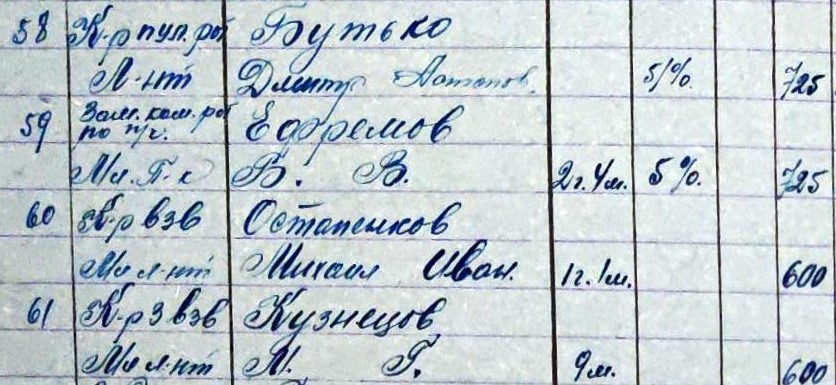 58 К-р пул. рот Бутько
Л-нт Дмитр 5% 725
59 Зам. ком. рот Ефремов
по п/ч.
Мл. П-к Б. В. 2г. 4м. 5%. 725
60 К-р взв Остапенков
Мл л-нт Михаил Иван. 1г. 1м. 600
61 К-р 3 взв Кузнецов
Мл л-нт Г. 9м. 600